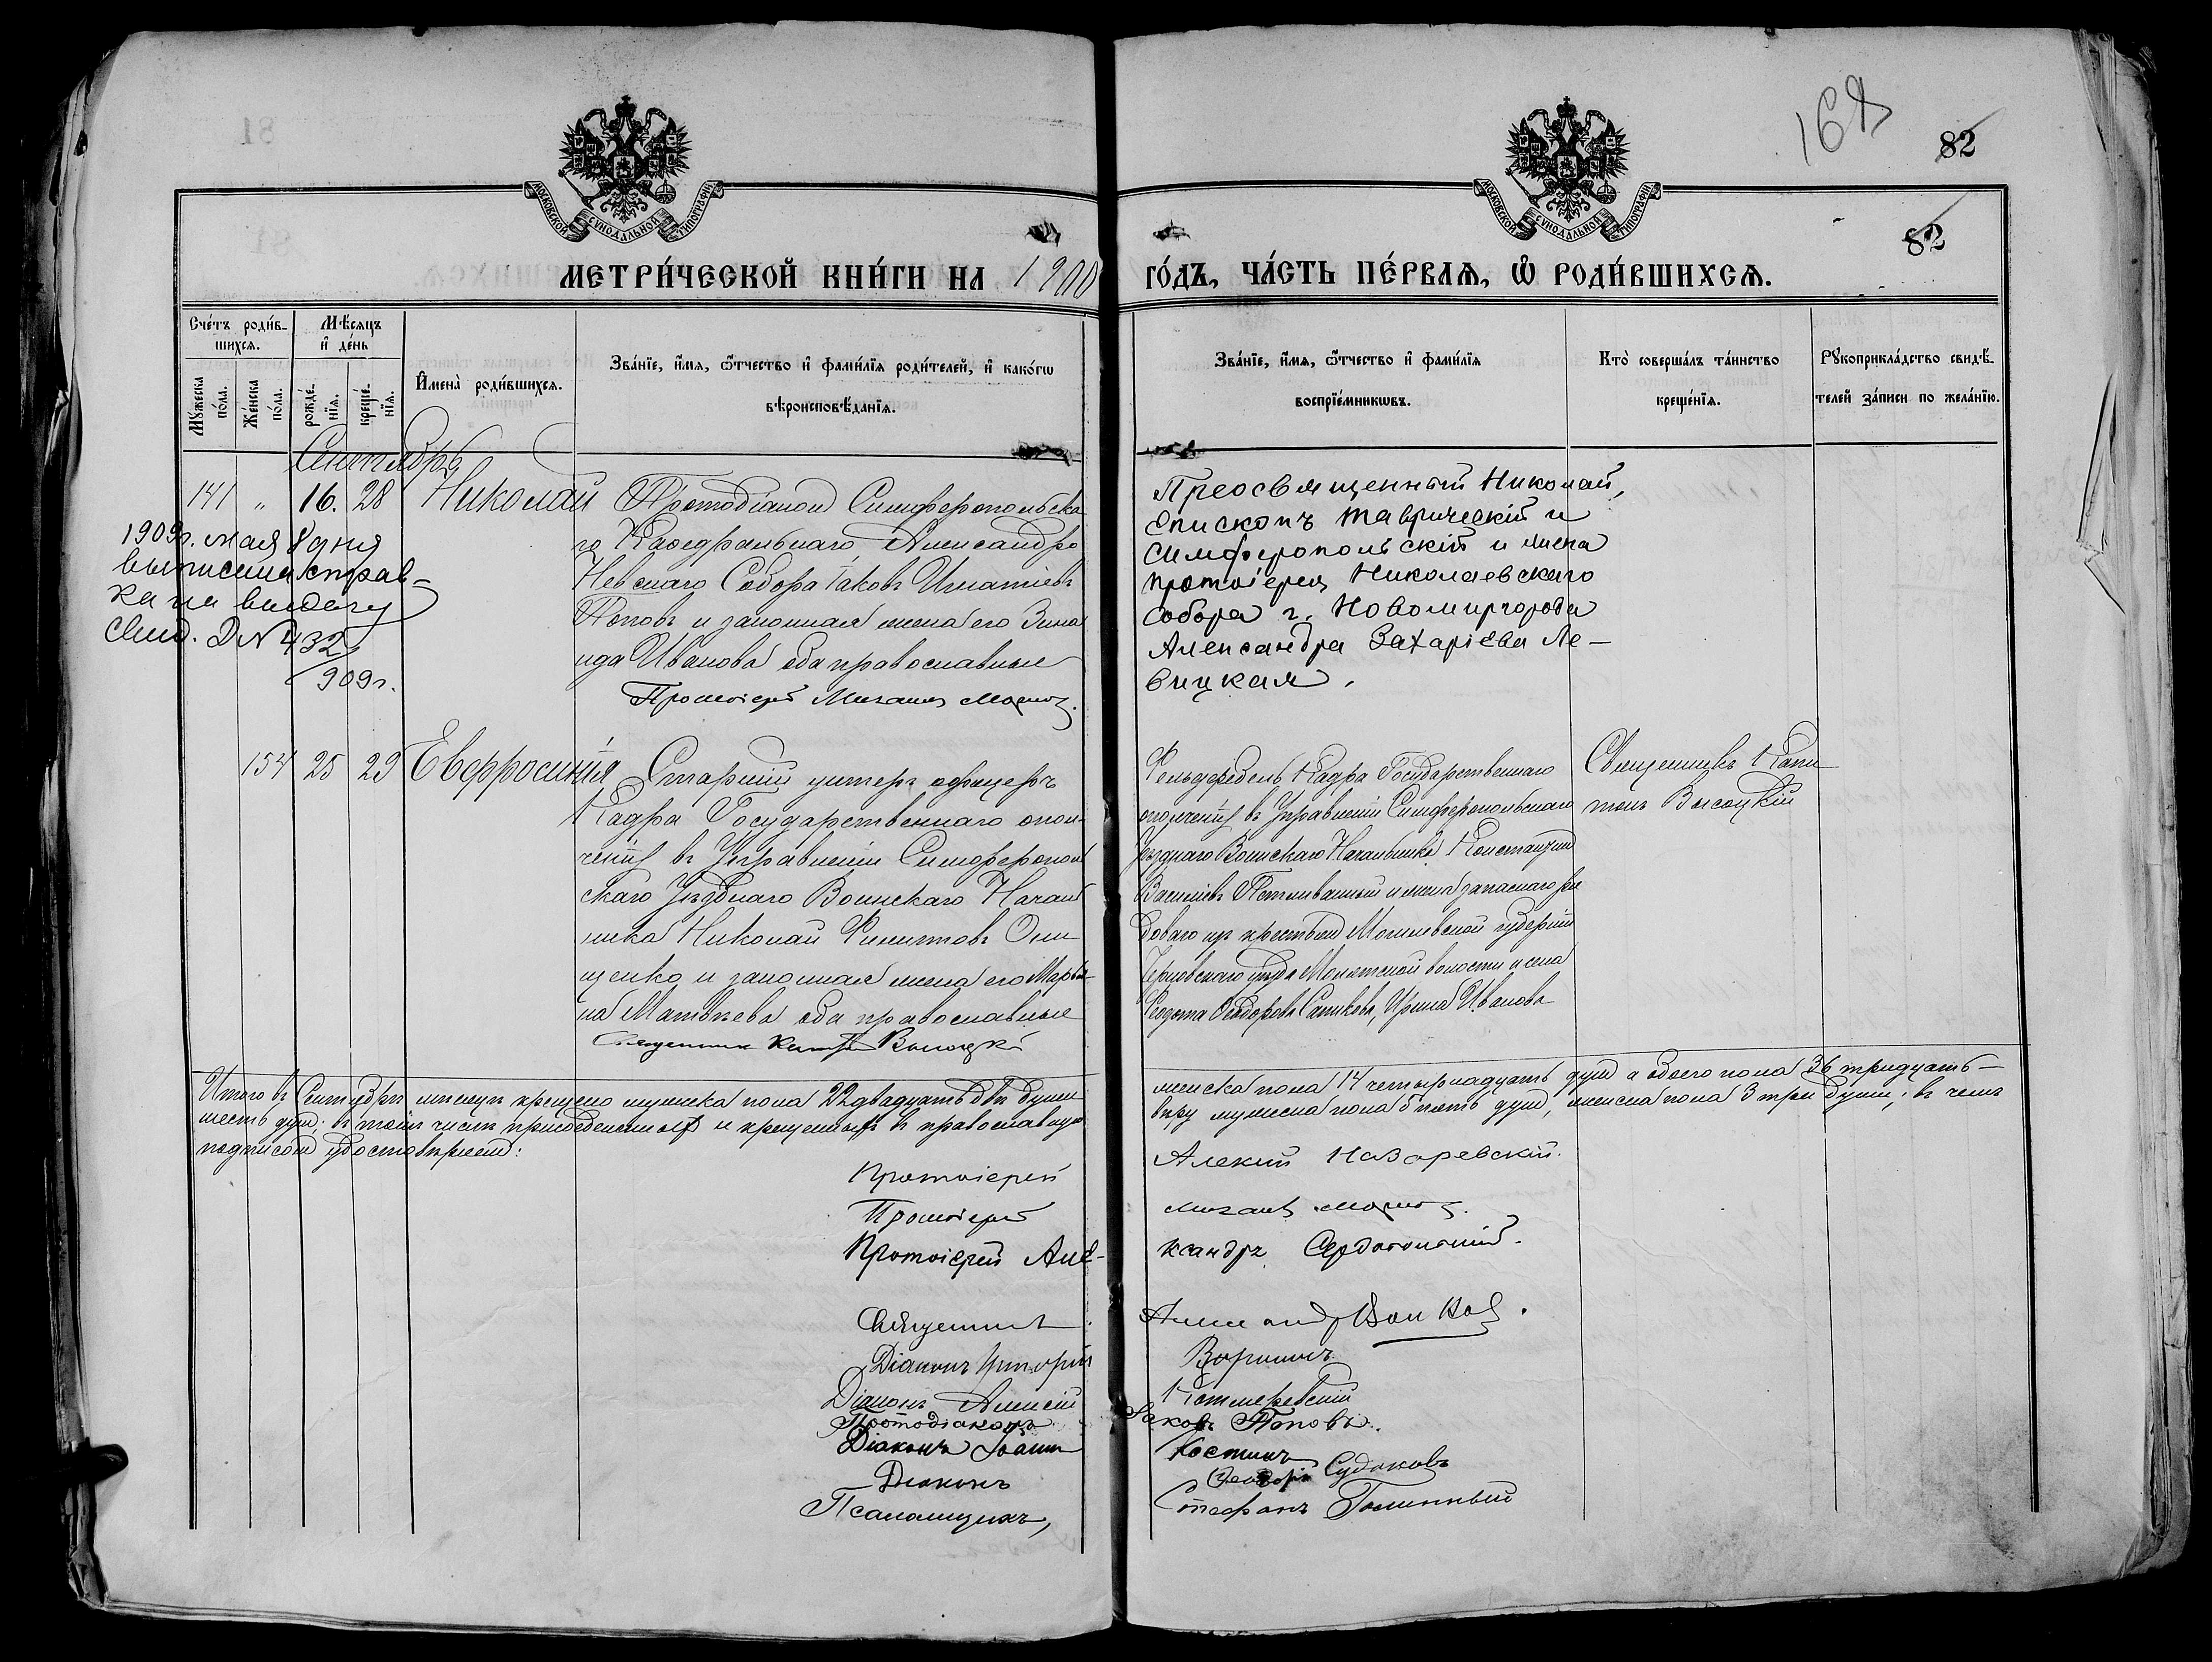 168
82
82
МОСКОВСКОЙ СИНОДАЛЬНОЙ ТИПОГРАФІИ
МОСКОВСКОЙ СИНОДАЛЬНОЙ ТИПОГРАФІИ
МЕТРИ́ЧЕСКОЙ КНИ́ГИ НА 1900 ГО́ДЪ, ЧА́СТЬ ПЕ́РВАѦ, Ѽ РОДИ́ВШИХСѦ.
Сче́тъ роди́в-
шихсѧ.
Мꙋжеска по́ла.
Же́нска по́ла.
Мѣ́сѧцъ и҆ де́нь
рожде́-
нїѧ.
креще́-
нїѧ.
И҆мена̀ роди́вшихсѧ.
Зва́нїе, и҆́мѧ, ѻ҆́тчество и҆ фами́лїѧ роди́телей, и҆ како́гѡ
вѣроисповѣ́данїѧ.
Зва́нїе, и҆́мѧ, ѻ҆́тчество и҆ фами́лїѧ
воспрїе́мникѡвъ.
Кто̀ соверша́лъ та́инство
креще́нїѧ.
Рꙋкоприкла́дство свидѣ́-
телей за́писи по жела́нїю.
Сентябрь
141 " 16. 28 Николай
Протодіаконъ Симферопольска
го Каѳедральнаго Александро
Невскаго Собора Іаковъ Игнатіевъ
Поповъ и законная жена его Зина
ида Иванова оба православные
Протоіерей Михаилъ
Преосвященный Николай,
Епископъ Таврическій и
Симферопольскій и жена
протоіерея Николаевскаго
Собора г. Новомиргорода
Александра Захаріева Ле-
вицкая.
1909г. мая 8 дня
выписана справ-
ка на выдачу
Свид. № 432
909г.
154 25 29 Евфросинія
Старшій унтеръ офицеръ
Кадра Государственнаго опол-
ченія въ Управленіи Симферополь
скаго Уѣзднаго Воинскаго Началь
ника Николай Филиповъ Они
щенко и законная жена его Марѳа
Матвѣева оба православные
Священникъ Капитонъ Высоцкій
Фельдфебель Кадра Государственнаго
ополченія въ Управленіи Симферопольскаго
Уѣзднаго Воинскаго Начальника Константинъ
Васильевъ и жена запаснаго ря
доваго изъ крестьянъ Могилевской губерніи
уѣзда волости и села
Ѳедота Ѳеодорова Иванова
Священникъ Капи
тонъ Высоцкій
Итого въ Сентябрѣ мѣсяцѣ крещено мужска пола 22 двадцать двѣ души
женска пола 14 четырнадцать душъ а обоего пола 36 тридцать-
шесть душъ; въ томъ числѣ присоединенныхъ и крещенныхъ въ православную
вѣру мужска пола 5 пять душъ, женска пола 3 три души; въ чемъ
подписомъ удостовѣряемъ:
Протоіерей Алексій Назаревскій.
Протоіерей Михаилъ
Протоіерей Але-
ксандръ Сердобольскій.
Священникъ
Діаконъ Григорій
Діаконъ Алексій
Протодіаконъ Іаковъ Поповъ.
Діаконъ Іоаннъ Костинъ
Діаконъ Судаковъ
Псаломщикъ, Стефанъ